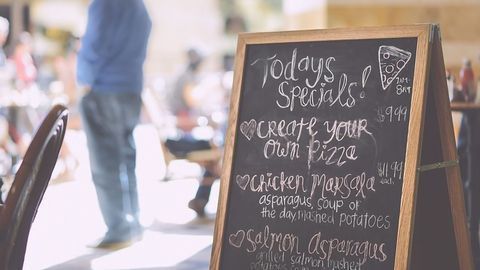 Todays
Specials!
$9.99
Create Your
Own Pizza
$11.99
each
Chicken Marsala
asparagus, soup of
the day, mashed potatoes
Salmon Asparagus
grilled salmon mashed